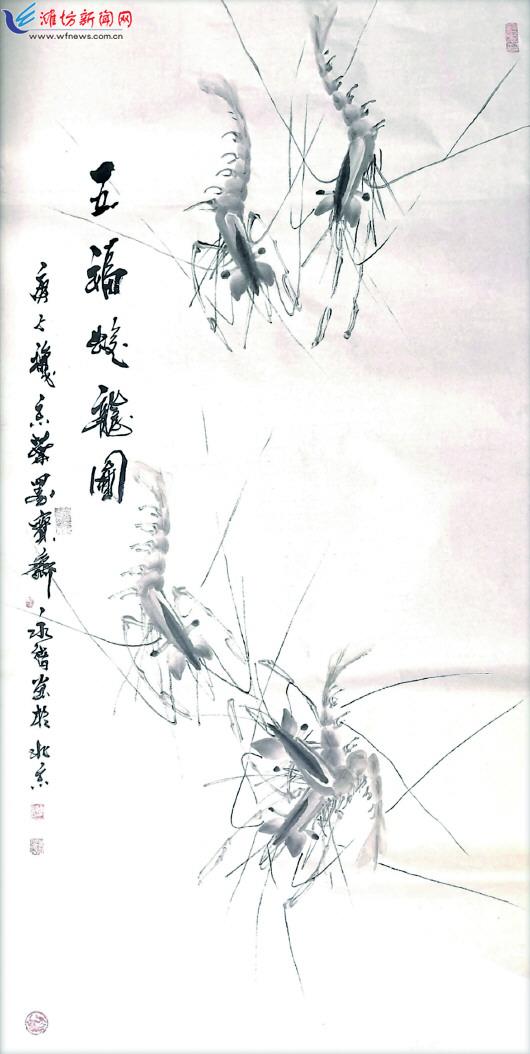 潍坊新闻网
www.wfnews.com.cn
五福蛟龍圖
京榮墨寶齋
永智畫於北京